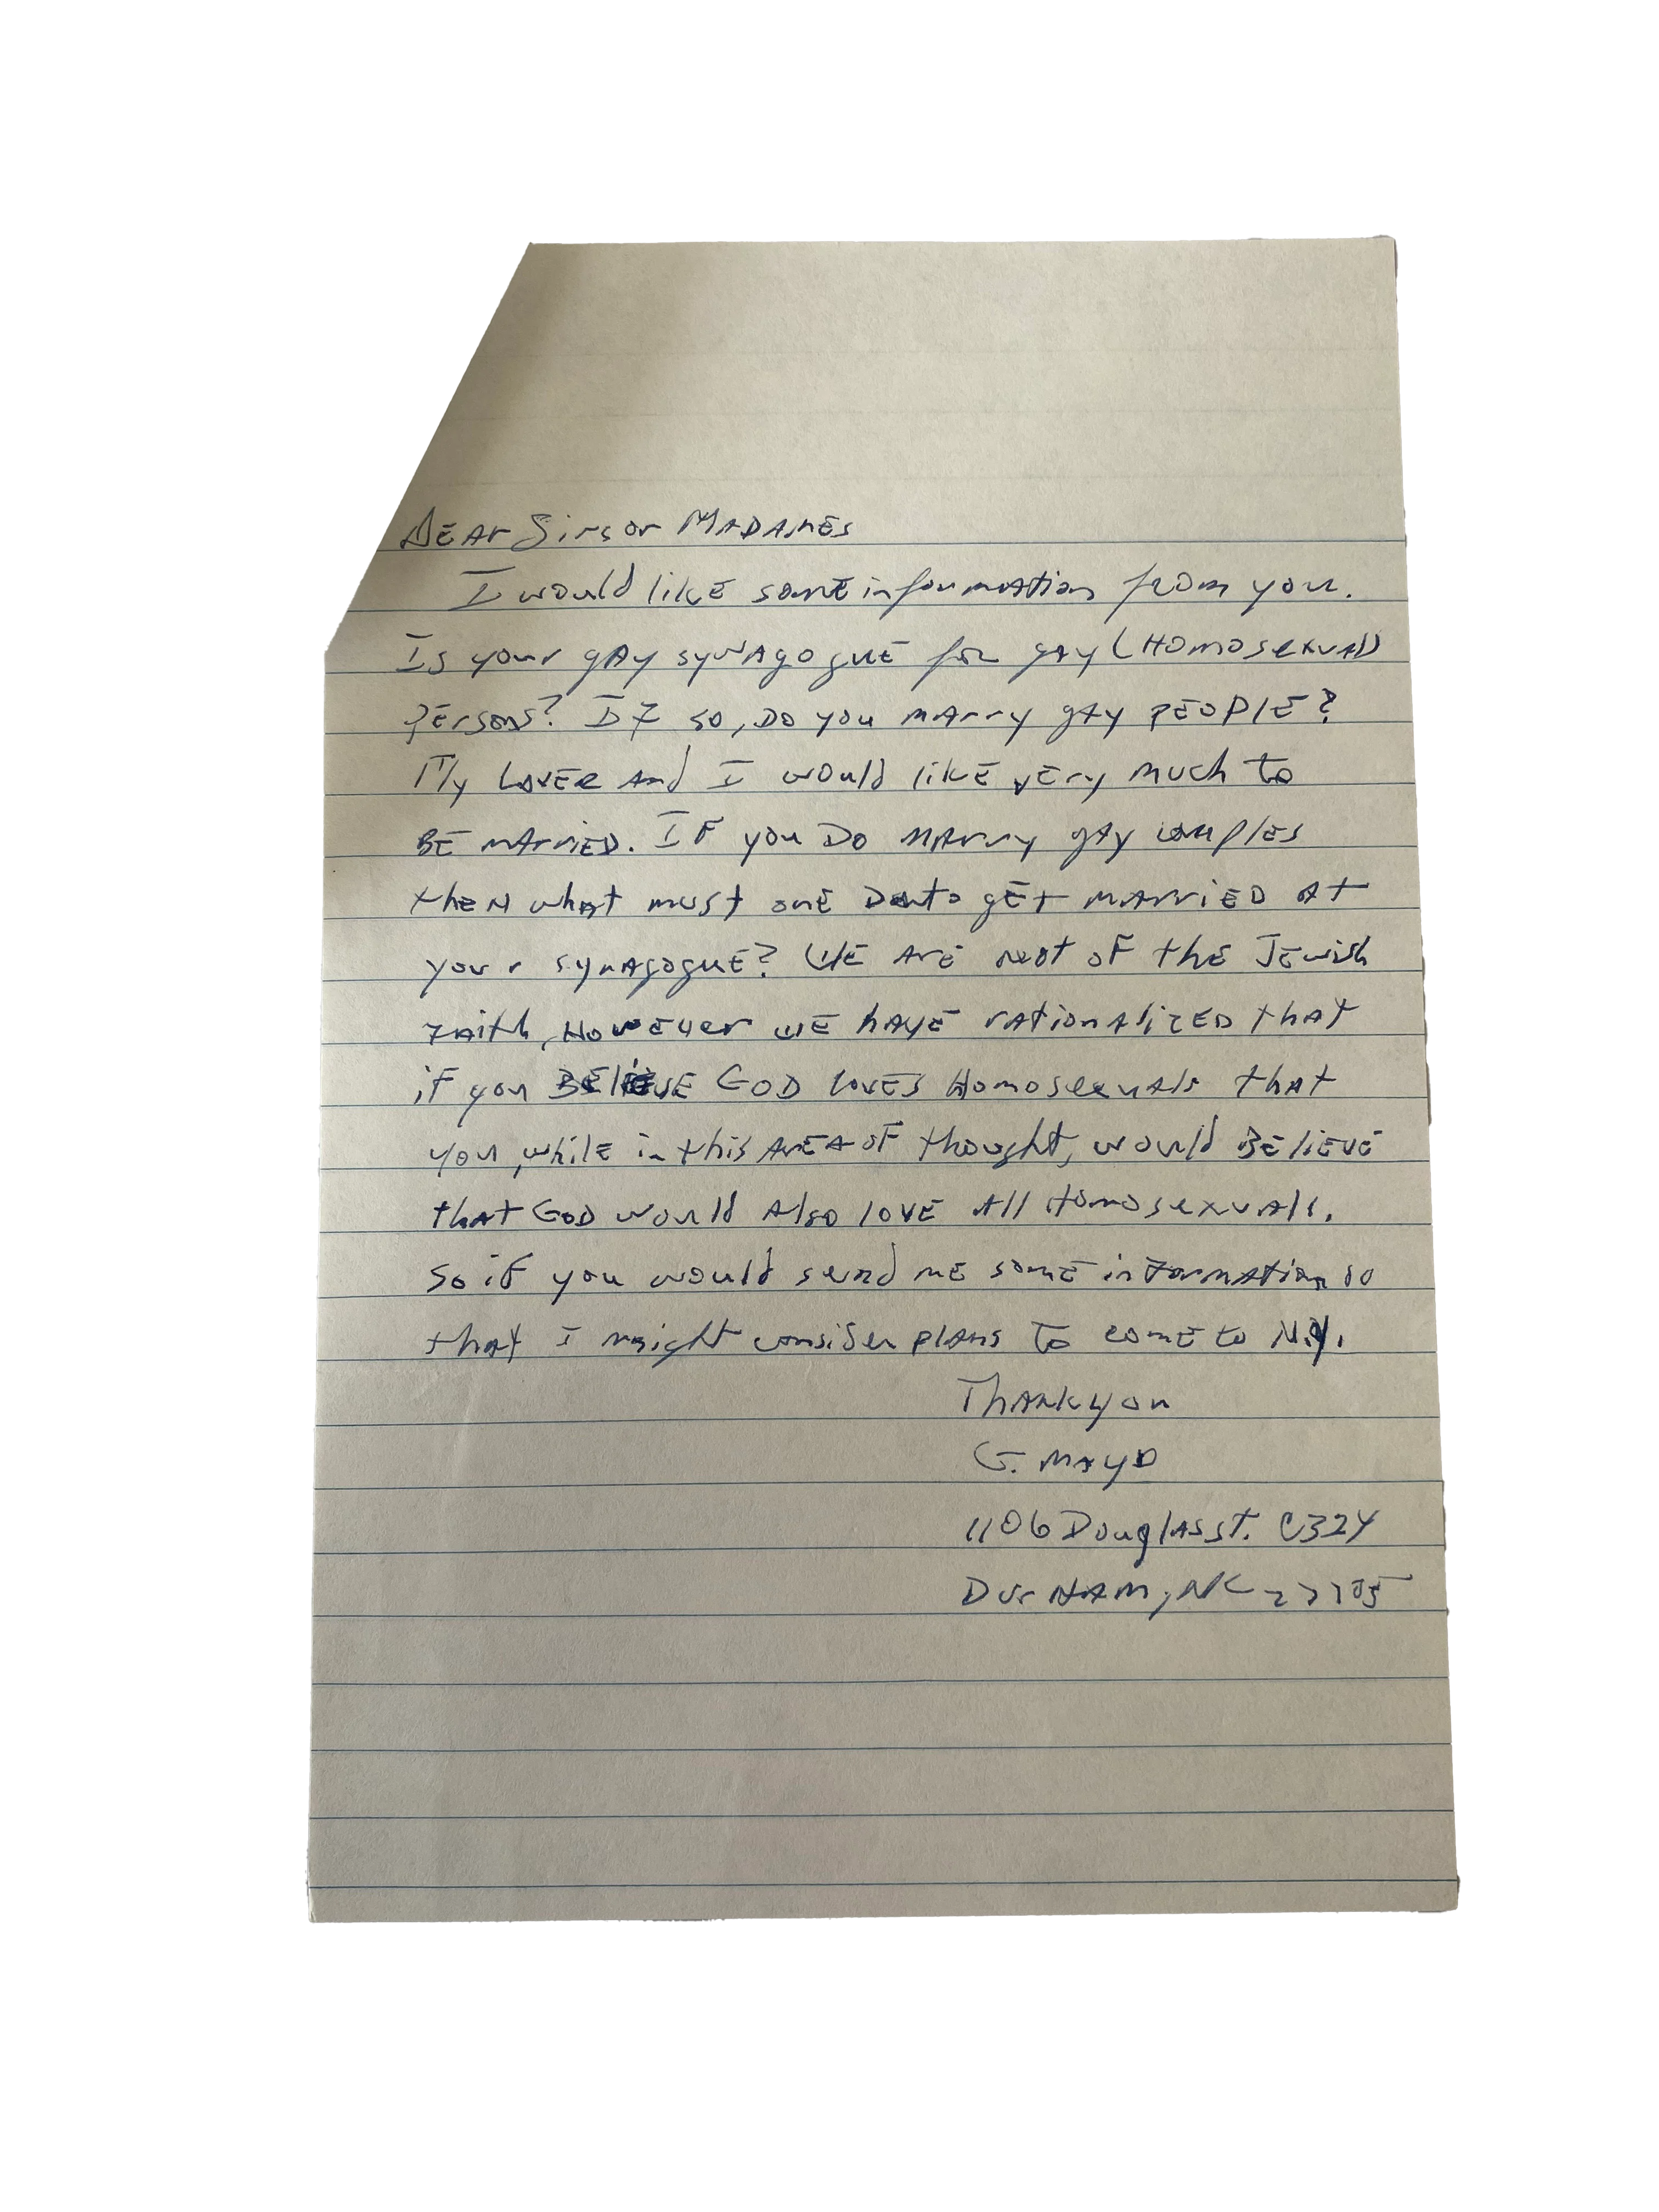 Dear Sirs or Madames
I would like some information from you.
Is your gay synagogue for gay (Homosexual)
persons? If so, Do you marry gay people?
My Lover and I would like very much to
be married. If you Do marry gay couples
then what must one Do to get married at
your synagogue? We are not of the Jewish
Faith, However we have rationalized that
if you Believe God loves Homosexuals that
you, while in this area of thought, would Believe
that God would also love all Homosexuals.
So if you would send me some information so
that I might consider plans to come to N.Y.
Thank you
G. Mayo
1106 Douglas st. C324
Durham, NC 27705